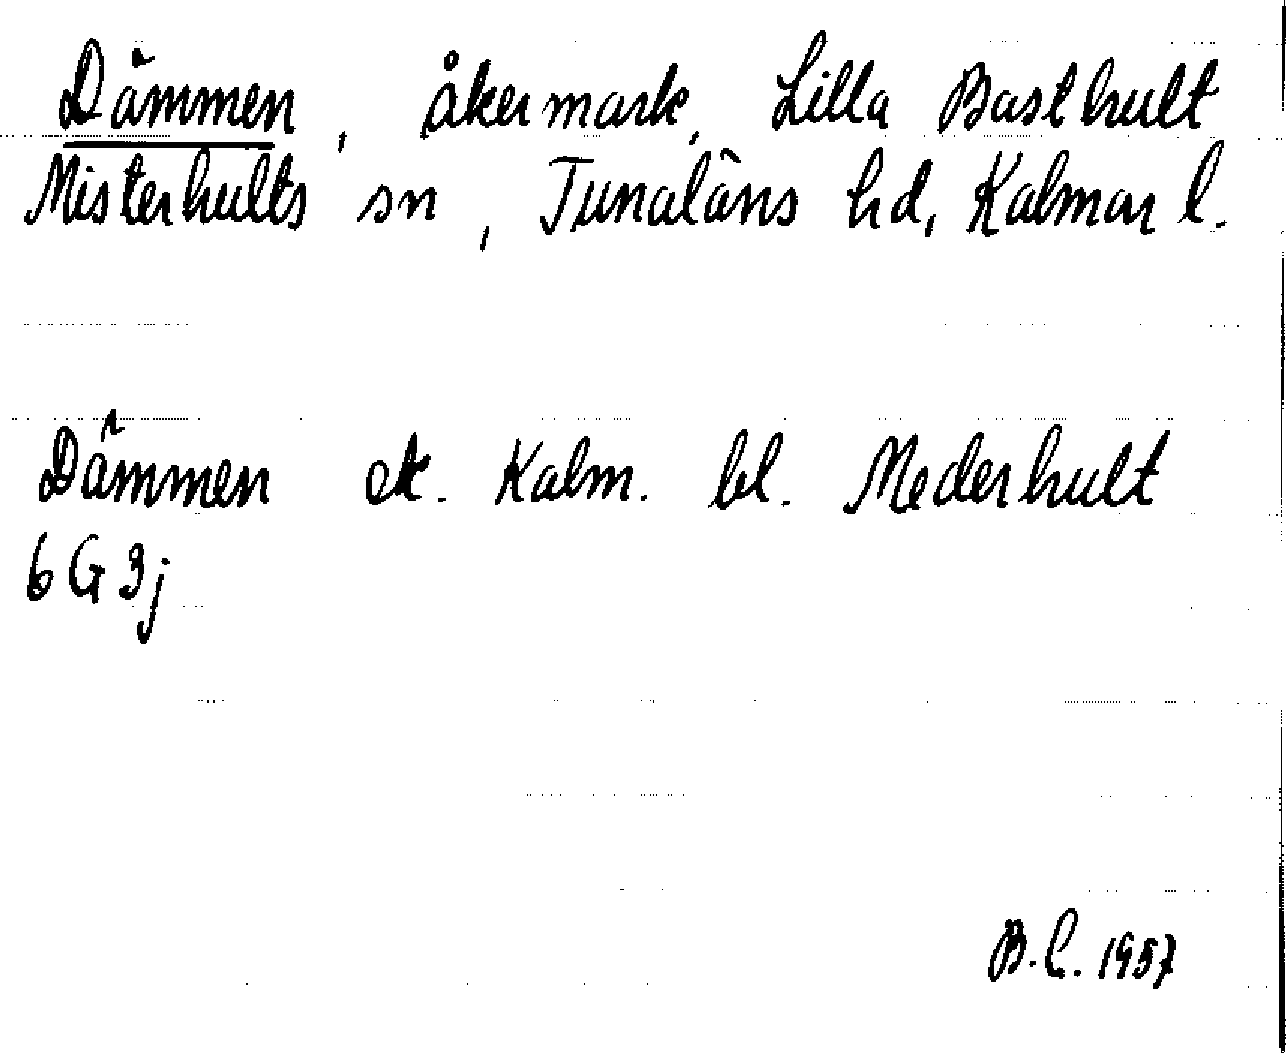 Dämmen, åkermark, Lilla Basthult
Misterhults sn, Tunaläns hd, Kalmar l.
Dämmen ek. Kalm. bl. Mederhult
6G3j
B.L. 1957